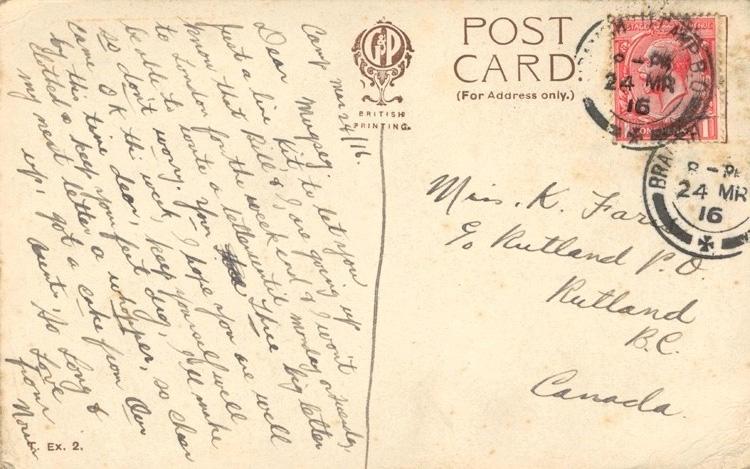 Camp Mar 24/16.
Dear Kit
Just a line to let you
know that Bill & I are going up
to London for the week end & I won't
be able to write a letter until Monday or Tuesday,
so don't worry. Your big letter
came O K this week, I hope you are well
by this time dear, keep yourself well
& keep your feet dry, I'll make
my next letter a whopper, so cheer
up, got a cake from
Aunt. So Long &
Love
from
POST
CARD.
(For Address only.)
BRITISH
PRINTING.
8 - PM
24 MR
16
8 - PM
24 MR
16
Miss. K. Farr
c/o Rutland P.O.
Rutland
B.C.
Canada.
Ex. 2.